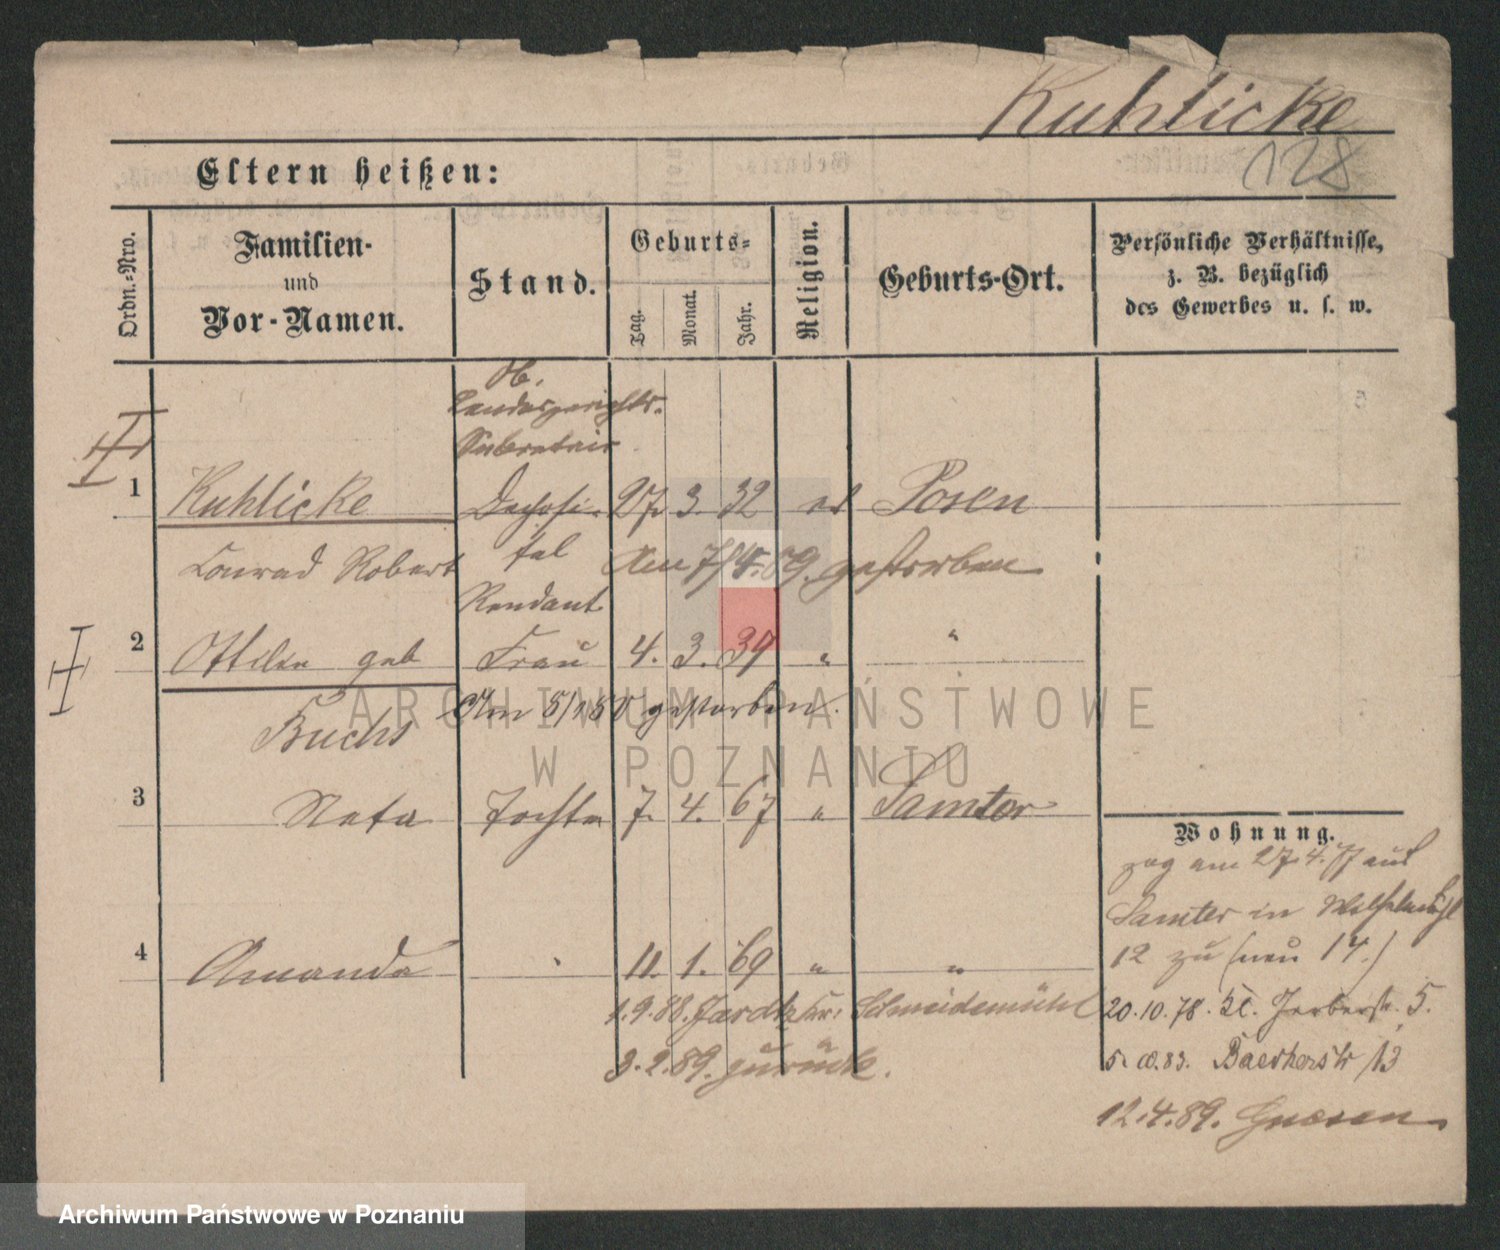 Kuhlicke
128
Eltern heißen:
Ordn.-Nro.
Familien-
und
Vor-Namen.
Stand.
Geburts-
Tag.
Monat.
Jahr.
Religion.
Geburts-Ort.
Persönliche Verhältnisse,
z. B. bezüglich
des Gewerbes u. s. w.
Ob.
Landesgerichts-
Sekretair
1 Kuhlicke Deposi- 27. 3. 32 ev Posen
Conrad Robert tal Am 7/4. 89. gestorben
Rendant
2 Ottilie geb Frau 4. 3. 39 " "
Fuchs Am gestorben.
3 Neta Tochter 7. 4. 67 " Samter
Wohnung.
zog am 27.4.77 aus
Samter in
12 zu (neu 14.)
4 Amanda 11. 1. 69 " "
1.9.88. Schneidemühl
3.2.89. zurück.
20.10.78. Kl. Gerberstr. 5.
83. Baeckerstr 13
12.4.89. Gnesen
ARCHIWUM PAŃSTWOWE
W POZNANIU
Archiwum Państwowe w Poznaniu